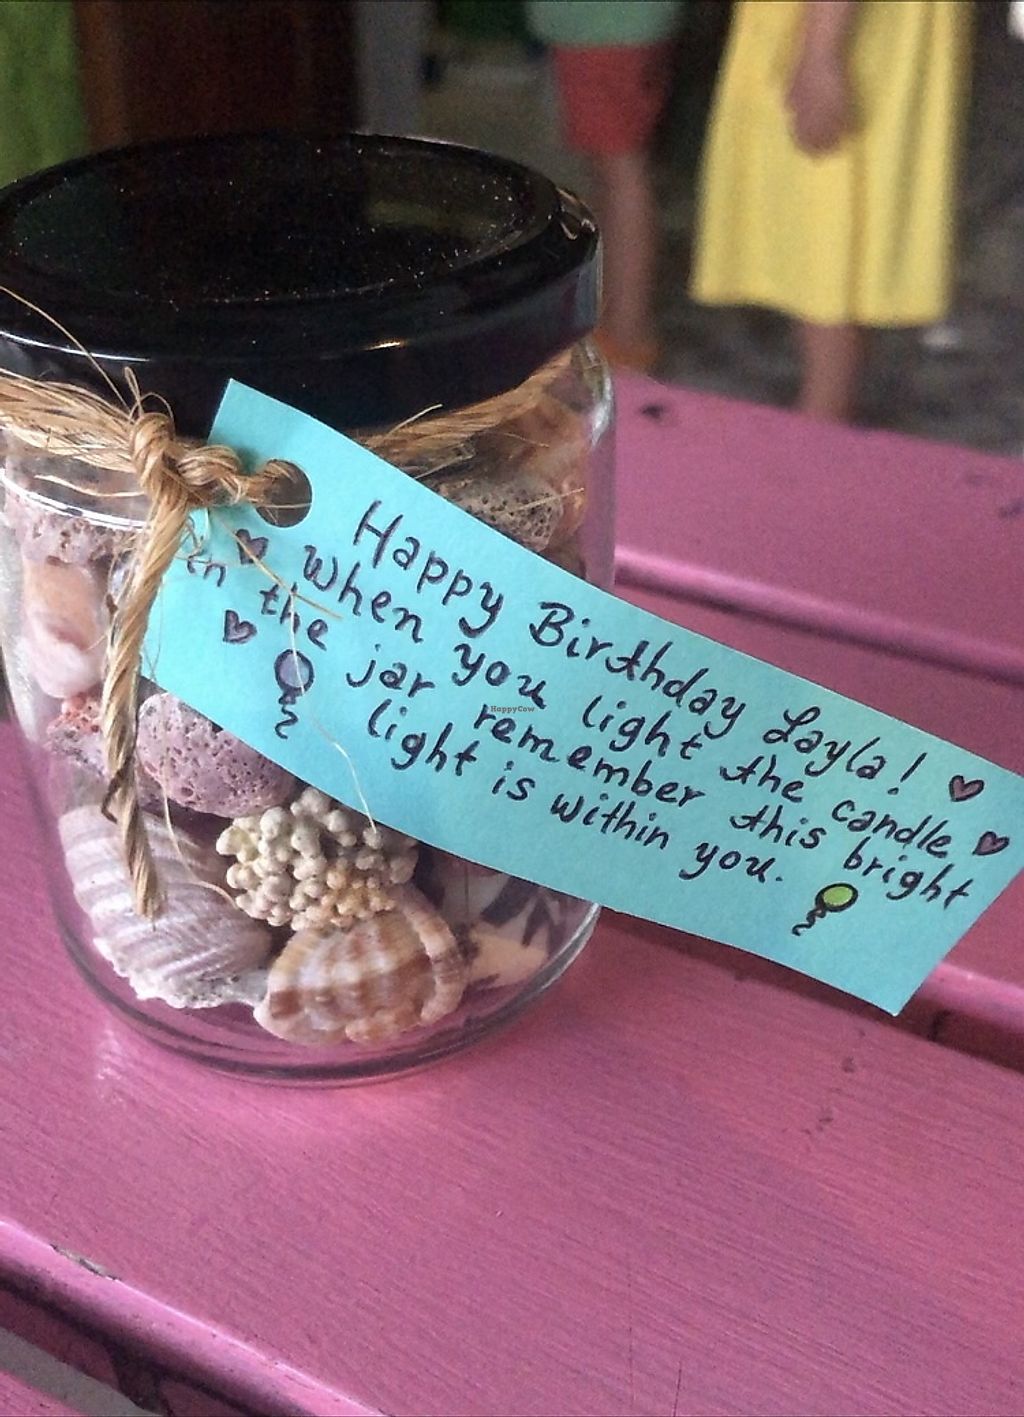 Happy Birthday Layla!
When you light the candle
in the jar remember this bright
light is within you.
HappyCow